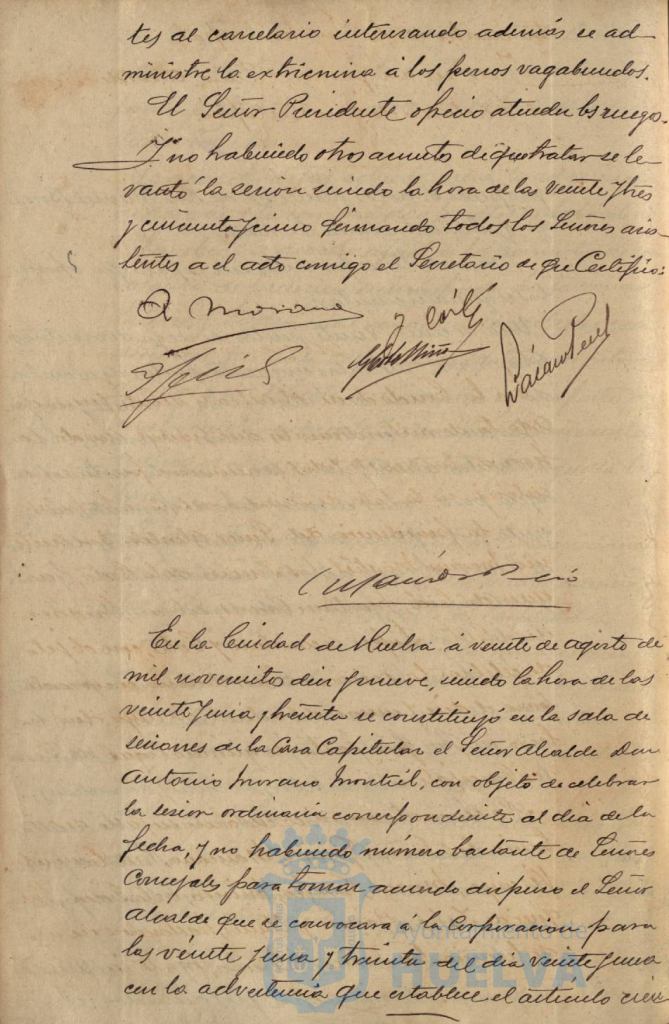 tes al carcelario interesando además se ad-
ministre la extricnina á los perros vagabundos.
El Señor Presidente ofreció atender los ruegos.
Y no habiendo otros asuntos de que tratar se le-
vantó la sesión siendo la hora de las veinte y tres
y cincuenta y cinco firmando todos los Señores asis-
tentes a el acto conmigo el Secretario de que Certifico:
A Morano
En la Ciudad de Huelva á veinte de agosto de
mil novecientos diez y nueve, siendo la hora de las
veinte y una y treinta se constituyó en la sala de
sesiones de la Casa Capitular el Señor Alcalde Don
Antonio Morano Montiel, con objeto de celebrar
la sesión ordinaria correspondiente al dia de la
fecha, y no habiendo número bastante de Señores
Concejales para tomar acuerdo dispuso el Señor
Alcalde que se convocara á la Corporación para
las veinte y una y treinta del dia veinte y una
con la advertencia que establece el artículo cien
HUELVA